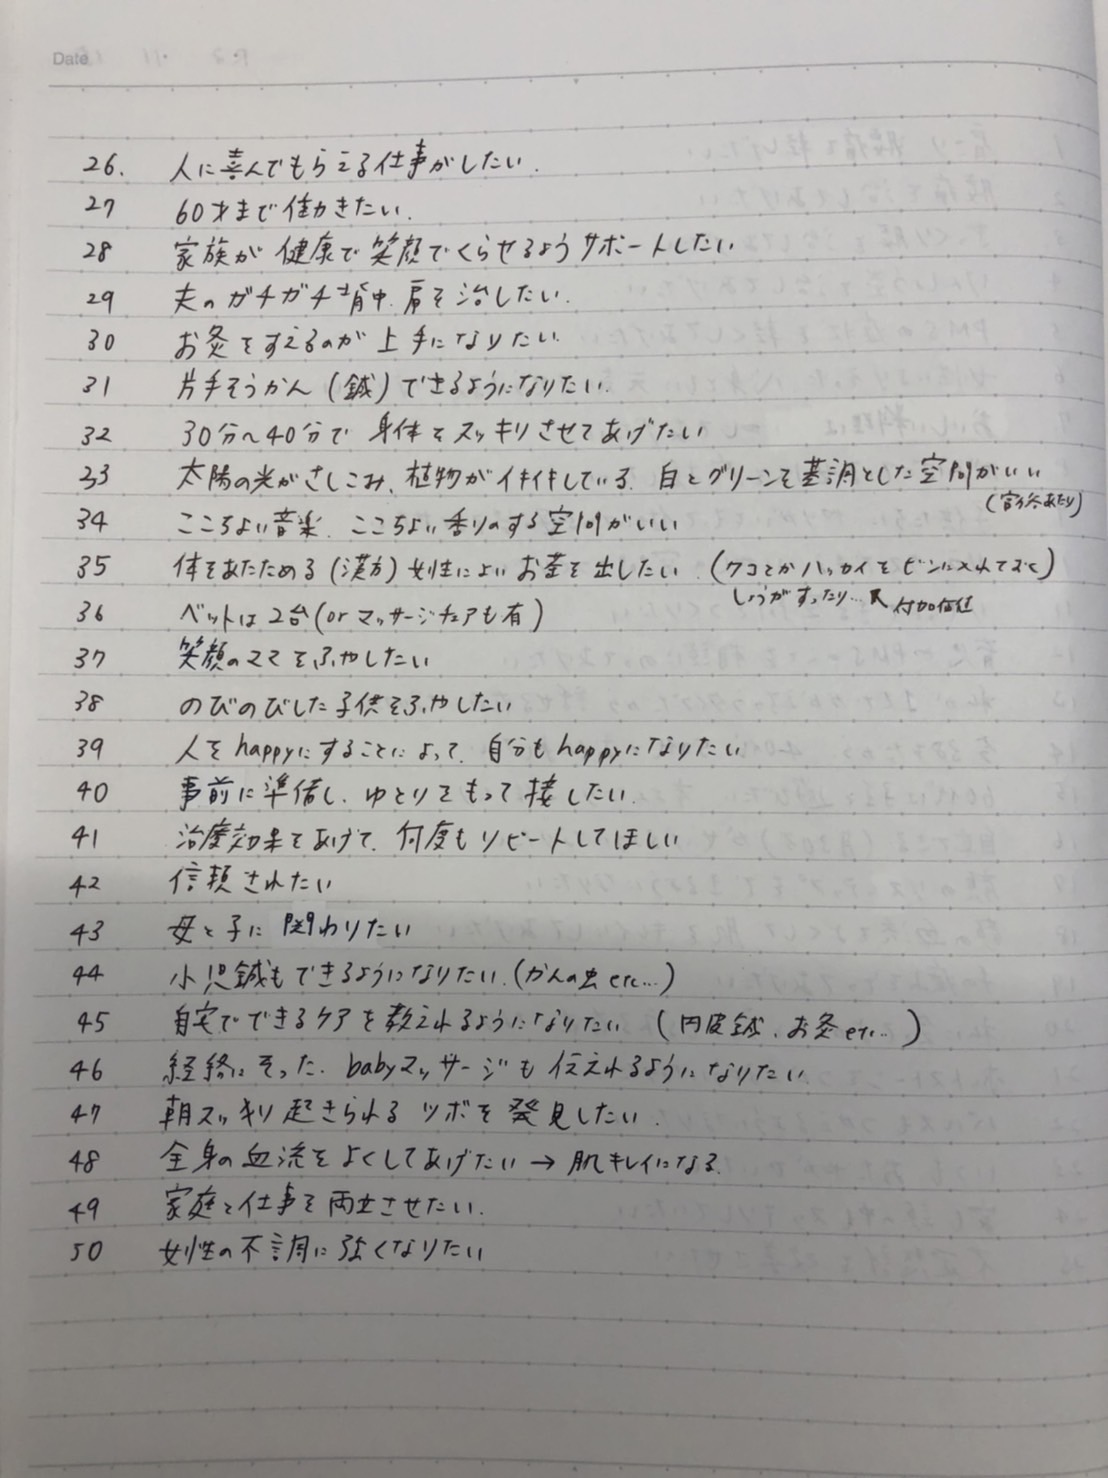 Date
26. 人に喜んでもらえる仕事がしたい.
27 60才まで働きたい.
28 家族が健康で笑顔でくらせるようサポートしたい
29 夫のガチガチ背中、肩を治したい.
30 お灸をすえるのが上手になりたい.
31 片手そうかん(鍼)できるようになりたい.
32 30分〜40分で身体をスッキリさせてあげたい
33 太陽の光がさしこみ、植物がイキイキしている、白とグリーンを基調とした空間がいい
34 こころよい音楽、ここちよい香りのする空間がいい
35 体をあたためる(漢方)女性によいお茶を出したい.(クコとかハッカイをビンに入れておく)
しょうがすったり… 付加価値
36 ベットは2台(orマッサージチェアも有)
37 笑顔のママをふやしたい
38 のびのびした子供をふやしたい
39 人をhappyにすることによって、自分もhappyになりたい
40 事前に準備し、ゆとりをもって接したい.
41 治療効果をあげて、何度もリピートしてほしい
42 信頼されたい
43 母と子に関わりたい
44 小児鍼もできるようになりたい.(かんの虫etc…)
45 自宅でできるケアを教えれるようになりたい(円皮鍼、お灸etc…)
46 経絡にそった、babyマッサージも伝えれるようになりたい
47 朝スッキリ起きられるツボを発見したい.
48 全身の血流をよくしてあげたい→肌キレイになる.
49 家庭と仕事を両立させたい.
50 女性の不調に強くなりたい